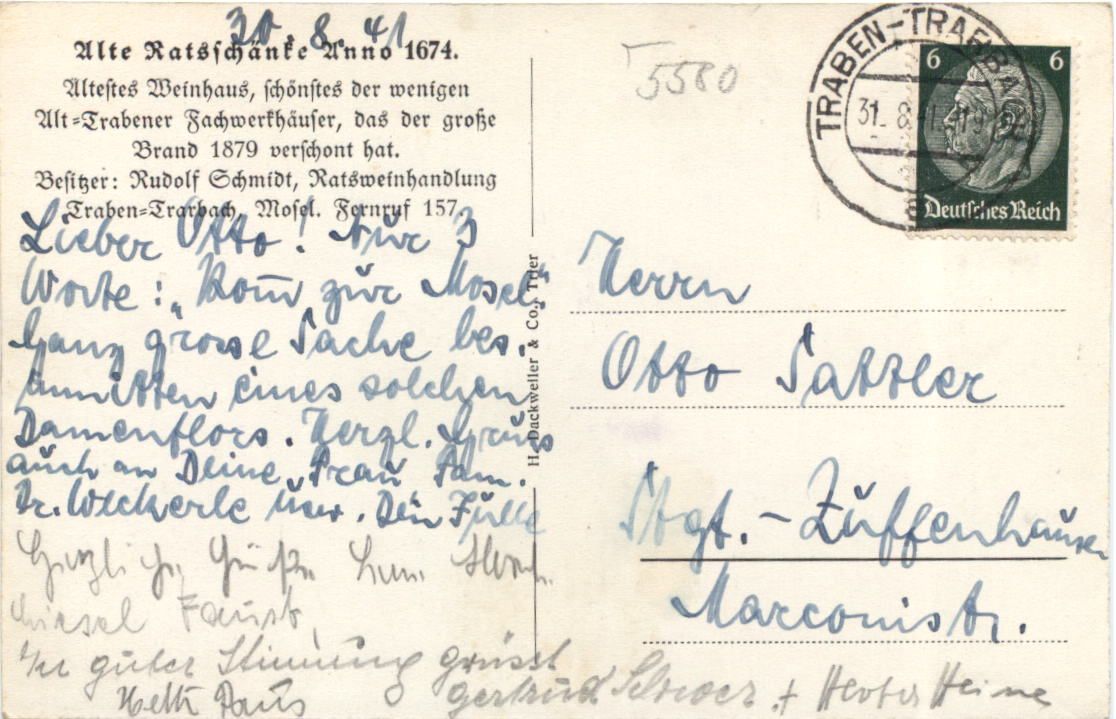 30.8.41
Alte Ratsschänke Anno 1674.
Ältestes Weinhaus, schönstes der wenigen
Alt-Trabener Fachwerkhäuser, das der große
Brand 1879 verschont hat.
Besitzer: Rudolf Schmidt, Ratsweinhandlung
Traben-Trarbach, Mosel. Fernruf 157.
Lieber Otto! Nur 3
Worte: „Kom̅ zur Mosel"
Ganz grosse Sache bes.
inmitten eines solchen
Damenflors. Herzl. Gruss
auch an Deine Frau Fam.
Dr. Weckerle usw. Dein Fülle
Herzliche Grüße
Liesel Faust,
In guter Stimmung grüsst
Gertrud + Herbert Heine
Hetti Paus
H. Dackweiler & Co., Trier
5580
TRABEN-TRARBACH
31.8.41
6 6
Deutsches Reich
Herrn
Otto Sattler
Stgt.-Zuffenhausen
Marconistr.